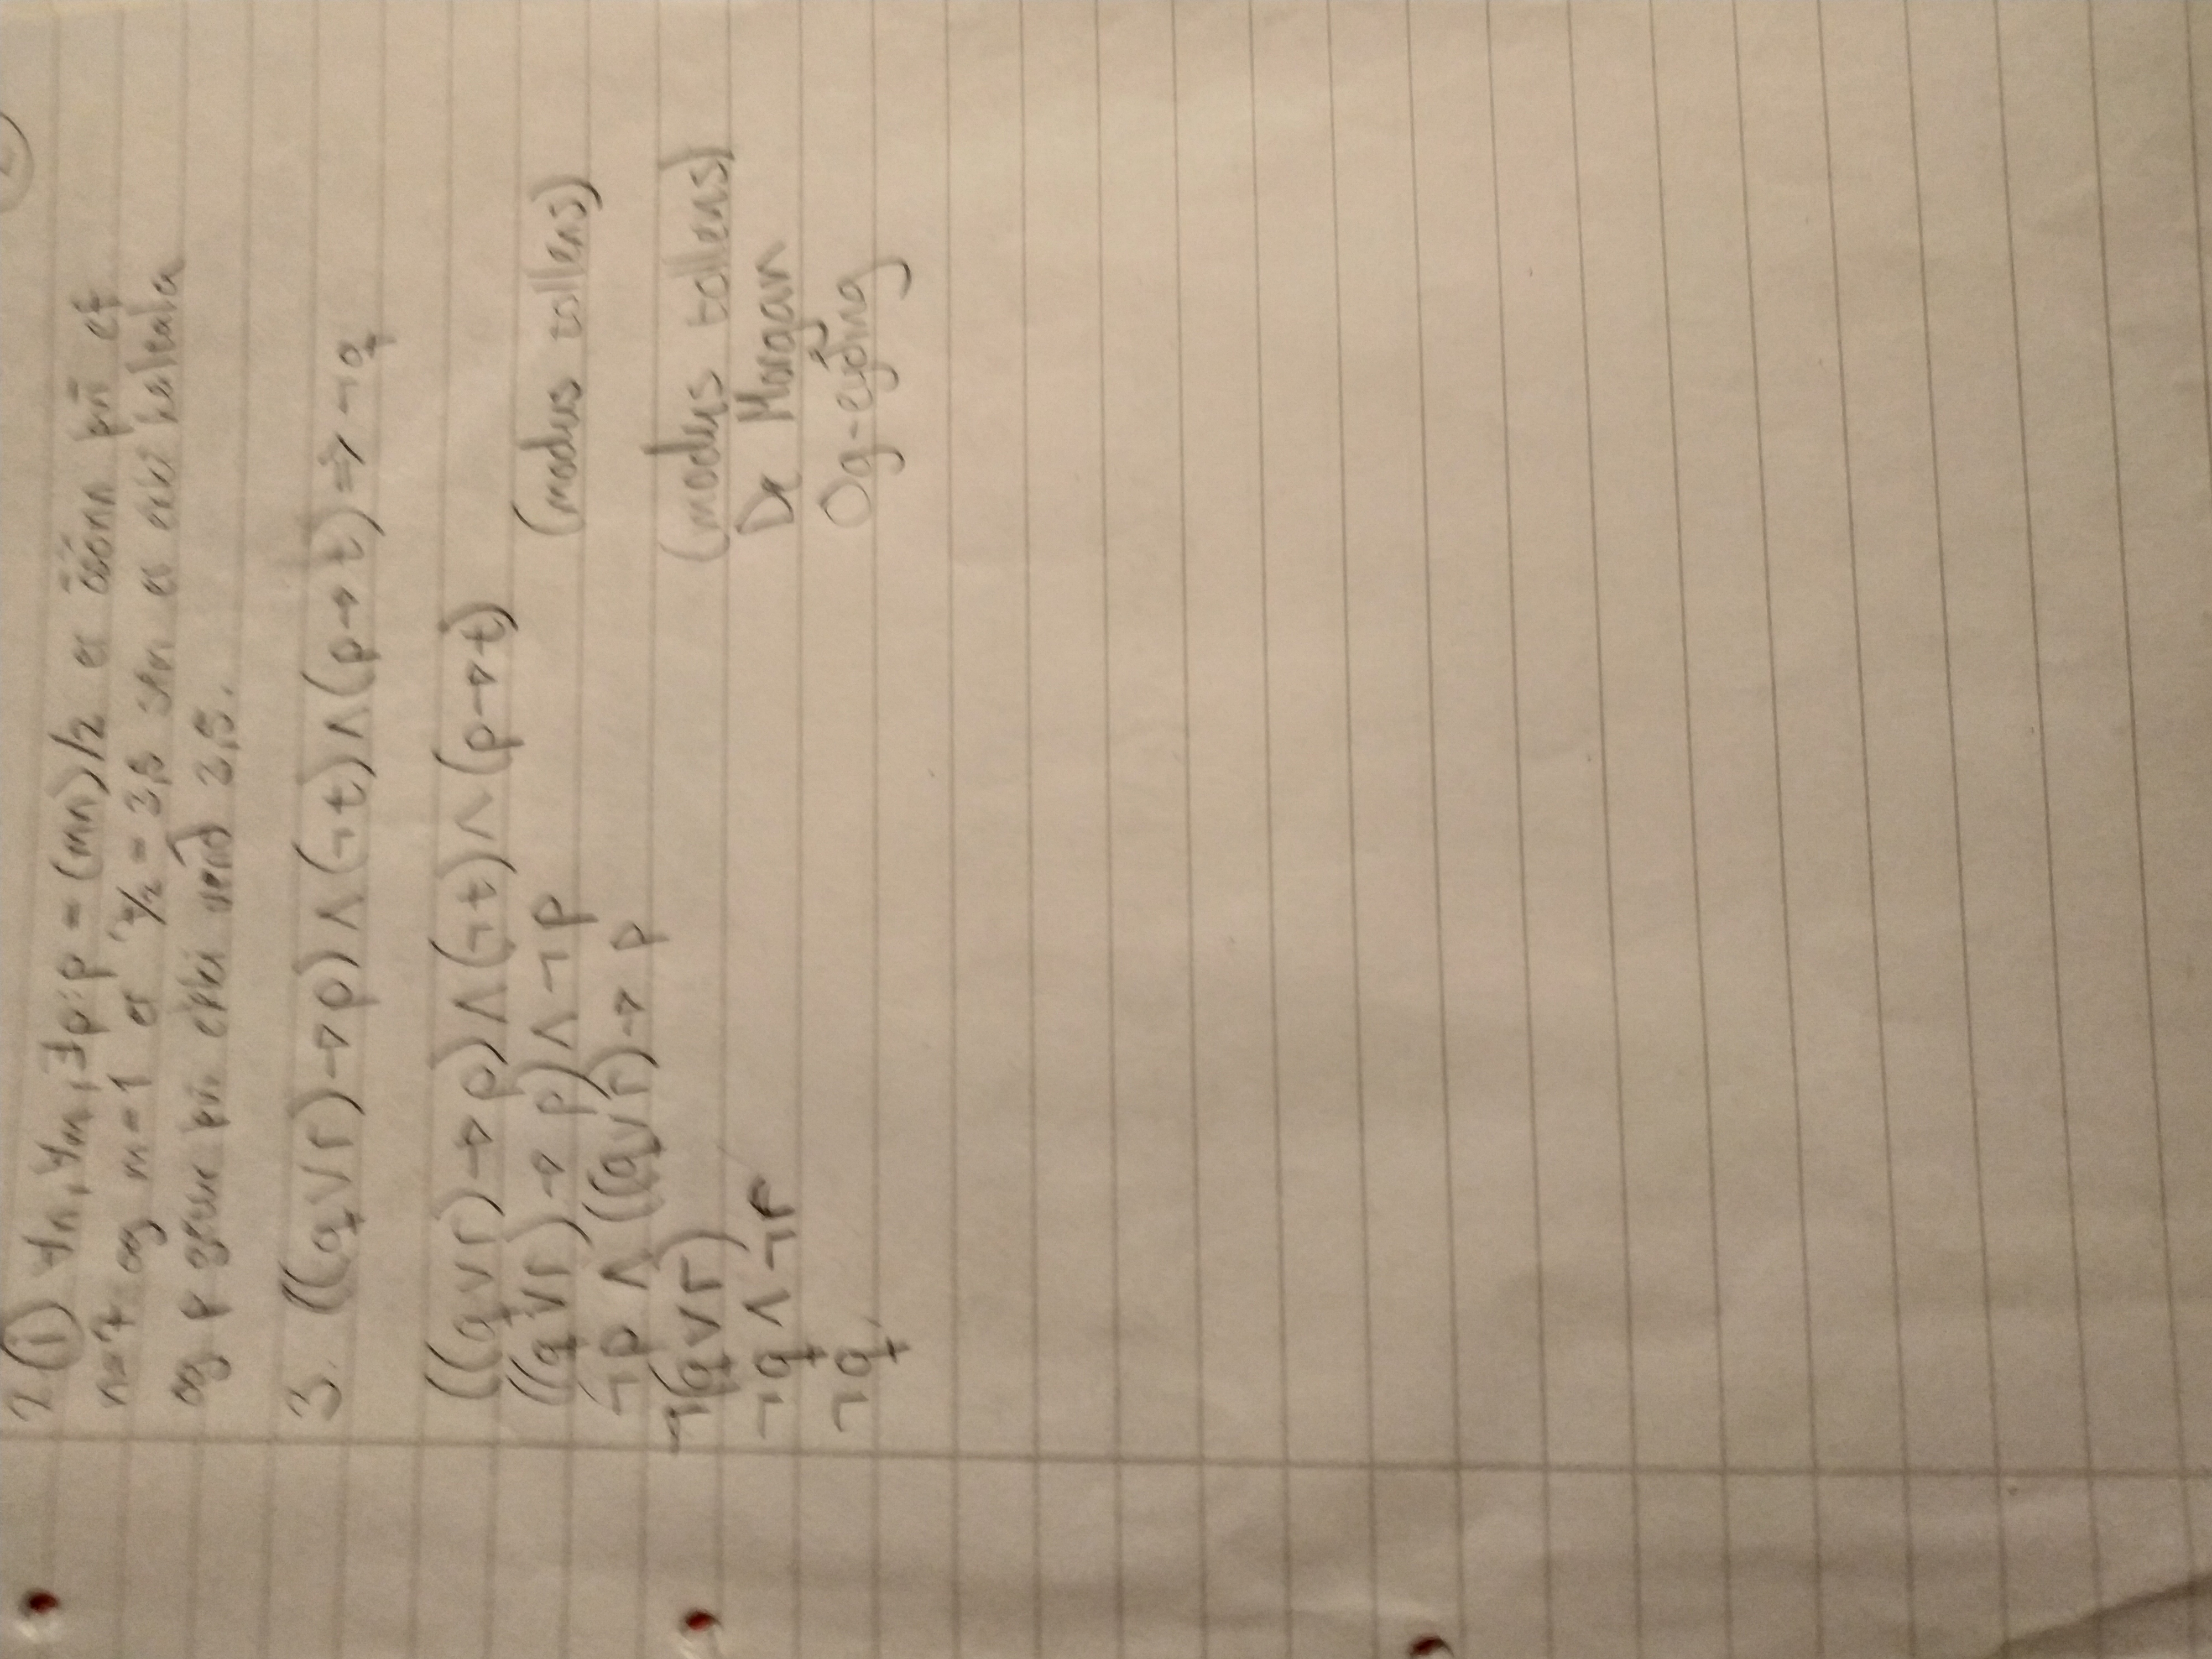 2 (i) ∀n, ∀m, ∃p: p = (mn)/2 er ósönn því ef
n=7 og m=1 er 7/2 = 3,5 sem er ekki heiltala
og p getur því ekki verið 3,5.
3. ((q∨r)→p)∧(¬t)∧(p→t)⇒¬q
((q∨r)→p)∧(¬t)∧(p→t)
((q∨r)→p)∧¬p (modus tollens)
¬p ∧ ((q∨r)→ p
¬(q∨r) (modus tollens)
¬q∧¬r De Morgan
¬q Og-eyðing